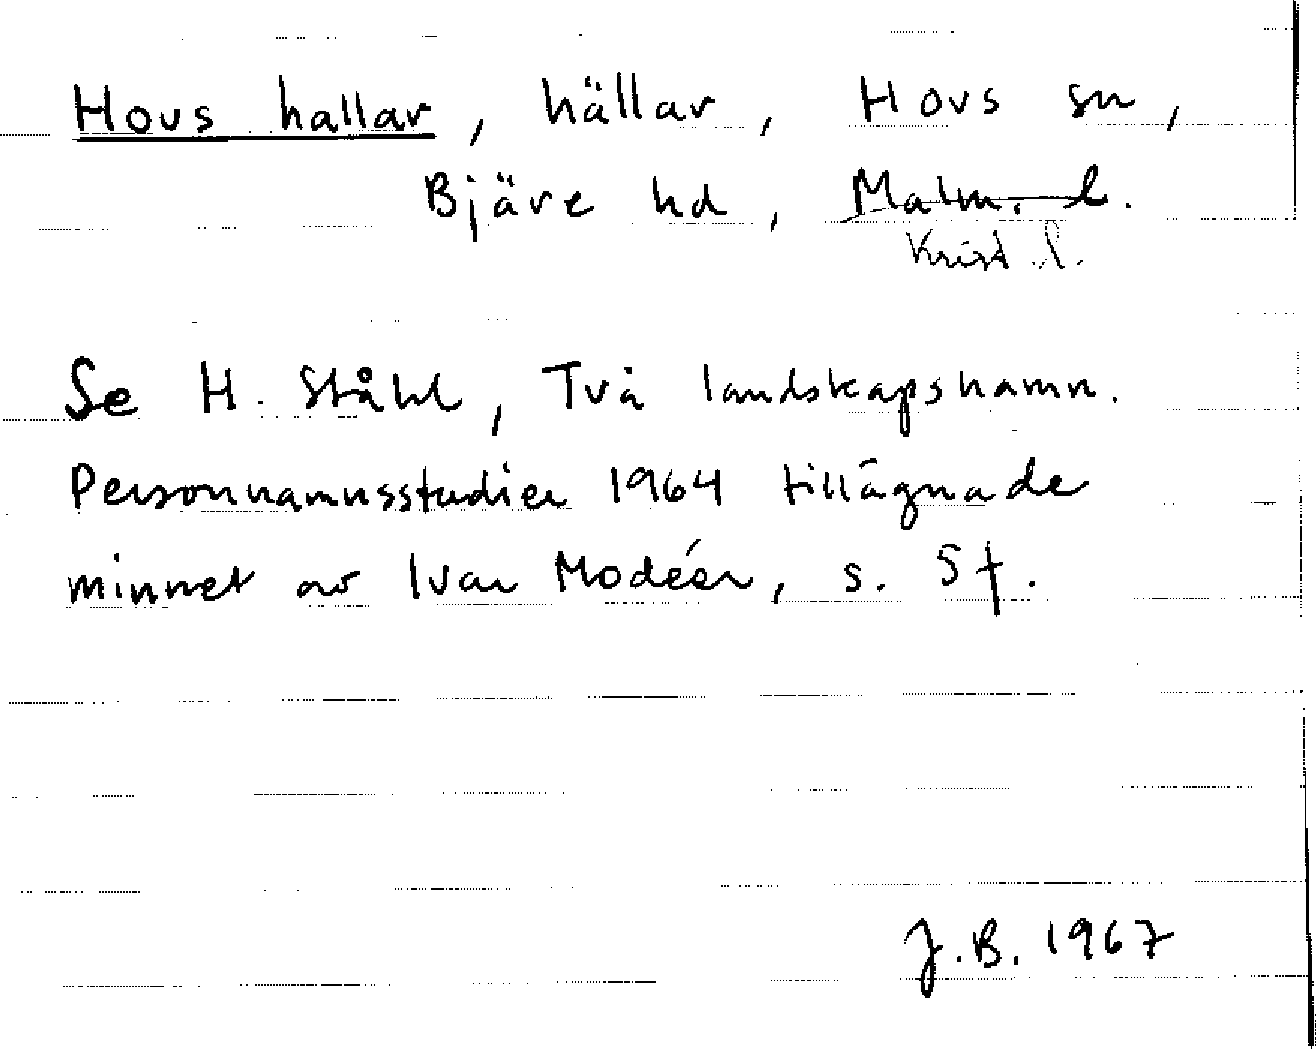 Hovs hallar, hällar, Hovs sn,
Bjäre hd, Malm. l.
Krist l.
Se H. Ståhl, Två landskapsnamn.
Personnamnsstudier 1964 tillägnade
minnet av Ivar Modéer, s. 57.
J.B. 1967